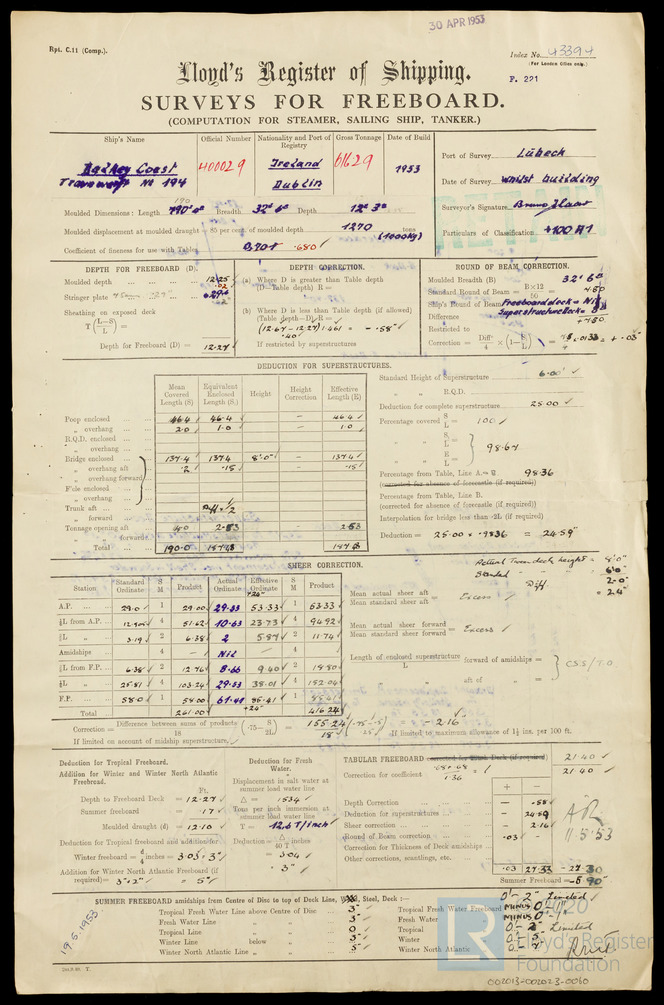 30 APR 1953
Rpt. C.11 (Comp.).
Index No. 43394
(For London Office only.)
Lloyd's Register of Shipping.
F. 221
SURVEYS FOR FREEBOARD.
(COMPUTATION FOR STEAMER, SAILING SHIP, TANKER.)
Ship's Name
Official Number
Nationality and Port of Registry
Gross Tonnage
Date of Build
400029
Ireland
Dublin
1629
1953
Coast
No 194
Port of Survey Lübeck
Date of Survey whilst building
Surveyor's Signature
Particulars of Classification +100 A1
Moulded Dimensions: Length 190' Breadth 32' 6" Depth 12' 3"
Moulded displacement at moulded draught = 85 per cent. of moulded depth 1270 tons
(1000 kg)
Coefficient of fineness for use with Tables .680
DEPTH FOR FREEBOARD (D).
Moulded depth
Stringer plate
Sheathing on exposed deck
T (L−S / L) =
Depth for Freeboard (D) = 12.27
DEPTH CORRECTION.
(a) Where D is greater than Table depth
(D−Table depth) R =
(b) Where D is less than Table depth (if allowed)
(Table depth−D) R =
(12.67 − 12.27) 1.461 = − .58
.40
If restricted by superstructures
ROUND OF BEAM CORRECTION.
Moulded Breadth (B) 32' 6"
Standard Round of Beam = B×12 / 50 =
Ship's Round of Beam = Freeboard deck = Nil
Superstructure deck =
Difference
Restricted to
Correction = Diff / 4 × (1 − S / L) = = + .03
DEDUCTION FOR SUPERSTRUCTURES.
Mean Covered Length (S)
Equivalent Enclosed Length (S₁)
Height
Height Correction
Effective Length (E)
Poop enclosed 46.4 46.4 – 46.4
„ overhang 2.0 1.0 – 1.0
R.Q.D. enclosed
„ overhang
Bridge enclosed 137.4 137.4 8'.0" – 137.4
„ overhang aft .2 .15 .15
„ overhang forward
F'cle enclosed
„ overhang
Trunk aft
„ forward
Tonnage opening aft 4.0 2.53 2.53
„ forward
Total 190.0
Standard Height of Superstructure 6.00'
„ „ R.Q.D.
Deduction for complete superstructure 25.00
Percentage covered S / L = 100
S₁ / L =
E / L = 98.67
Percentage from Table, Line A. B. 98.36
(corrected for absence of forecastle (if required))
Percentage from Table, Line B.
(corrected for absence of forecastle (if required))
Interpolation for bridge less than ·2L (if required)
Deduction = 25.00 × .9836 = 24.59"
SHEER CORRECTION.
Station
Standard Ordinate
S M
Product
Actual Ordinate
Effective Ordinate
S M
Product
A.P. 29.0 1 29.00 29.33 53.33 1 53.33
⅙L from A.P. 4 51.62 10.63 23.73 4 94.92
⅓L „ 3.19 2 6.38 2 5.87 2 11.74
Amidships 4 – Nil 4
⅓L from F.P. 6.38 2 12.76 8.66 9.40 2 18.80
⅙L „ 25.81 4 103.24 29.53 38.01 4 152.04
F.P. 58.0 1 58.00 61.41 85.41 1 85.41
Total 261.00 416.24
Actual Tween deck height = 8'0"
Standard „ „ = 6'0"
Diff = 2'0"
= 24"
Mean actual sheer aft
Mean standard sheer aft = Excess
Mean actual sheer forward
Mean standard sheer forward = Excess
Length of enclosed superstructure / L forward of amidships =
„ aft of „ =
Correction = Difference between sums of products / 18 (·75 − S / 2L) = 155.24 / 18 (.75−.5) = 2.16"
If limited on account of midship superstructure.
If limited to maximum allowance of 1½ ins. per 100 ft.
Deduction for Tropical Freeboard.
Addition for Winter and Winter North Atlantic Freeboard.
Ft.
Depth to Freeboard Deck = 12.27
Summer freeboard = .17
Moulded draught (d) = 12.10
Deduction for Tropical freeboard and addition for
Winter freeboard = d / 4 inches = 3.03 = 3"
Addition for Winter North Atlantic Freeboard (if required) = 3"+2" = 5"
Deduction for Fresh Water.
Displacement in salt water at summer load water line
Δ = 1534
Tons per inch immersion at summer load water line
T = 12.6 T/inch
Deduction = Δ / 40 T inches
= 3.04
= 3"
TABULAR FREEBOARD corrected for Flush Deck (if required) 21.40
Correction for coefficient .68+.68 / 1.36 = 1 21.40
+ −
Depth Correction – .58
Deduction for superstructures – 24.59
Sheer correction – 2.16
Round of Beam correction .03 –
Correction for Thickness of Deck amidships
Other corrections, scantlings, etc.
.03 27.33 −27.30
Summer Freeboard = −5.90"
11.5.53
SUMMER FREEBOARD amidships from Centre of Disc to top of Deck Line, Wood, Steel, Deck :—
Tropical Fresh Water Line above Centre of Disc 3"
Fresh Water Line „ „ 3"
Tropical Line „ „ 0
Winter Line below „ 3"
Winter North Atlantic Line „ „ 5"
0'−2" Limited
Tropical Fresh Water Freeboard MINUS
Fresh Water „ MINUS
Tropical „ 0'−2" Limited
Winter „ 0'−5"
Winter North Atlantic „ 0'−7"
19.5.1953
LR
Lloyd's Register
Foundation
2020
002013-002023-0060